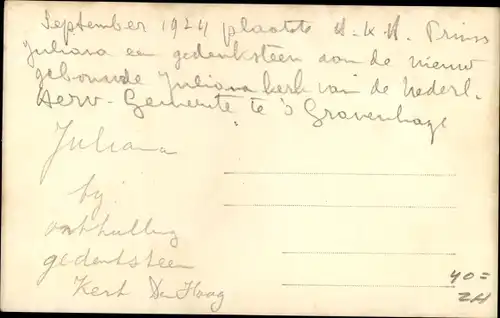 September 1924 plaatste H.K.H. Prinses
Juliana een gedenksteen aan de nieuw
gebouwde Julianakerk van de Nederl.
Herv. Gemeente te 's Gravenhage
Juliana
bij
onthulling
gedenksteen
Kerk Den Haag
40=
ZH